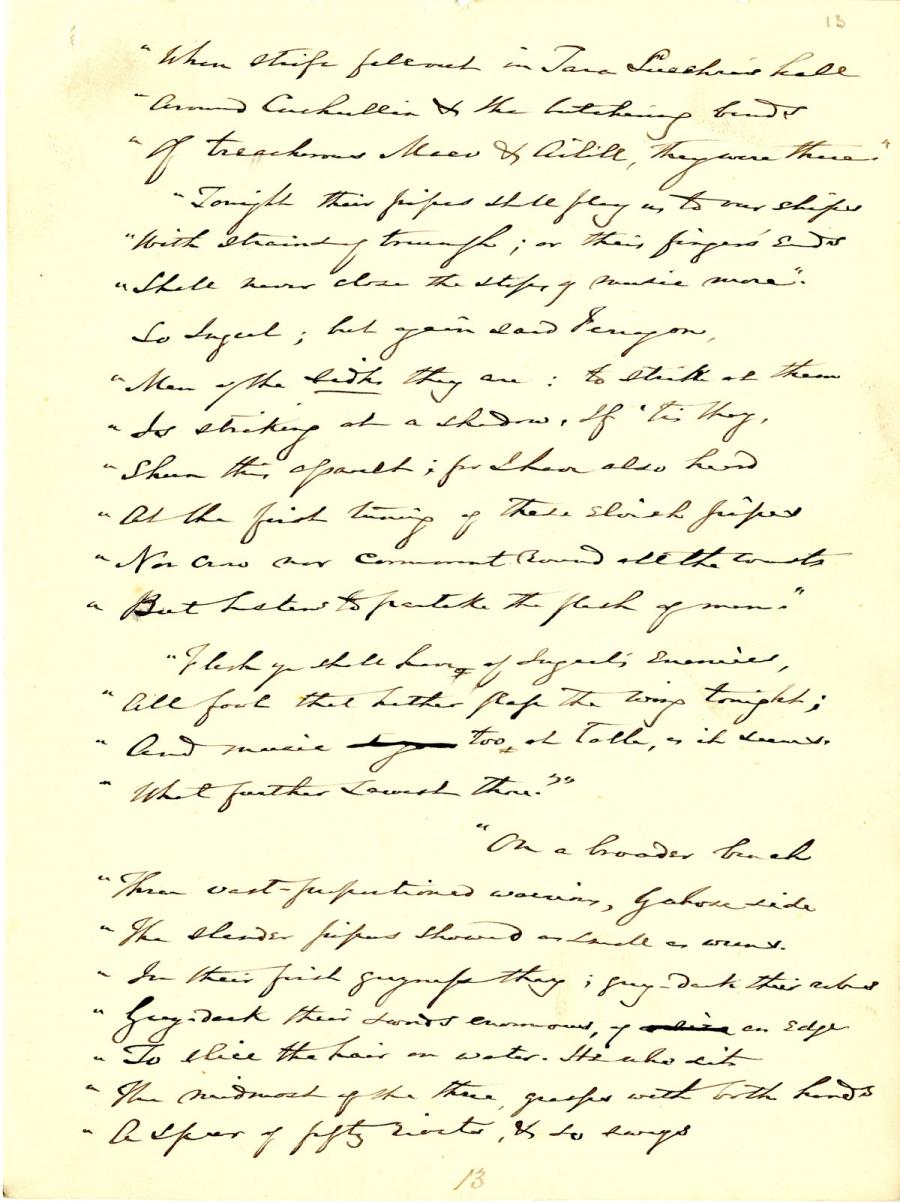 13
"When strife fell out in Tara Luachra's hall
"Around Cuchullin & the butchering bands
"Of treacherous Maev & Ailill, they were there."
"Tonight their pipes shall play us to our ships
"With strains of triumph; or their fingers' ends
"Shall never close the stops of music more".
So Ingcel; but again said Ferragon,
"Men of the Sidhs they are: to strike at them
"Is striking at a shadow. If 'tis they,
"Shun this assault; for I have also heard
"At the first tuning of these elvish pipes
"Nor crow nor cormorant round all the coasts
"But hastens to partake the flesh of men."
"Flesh ye shall have, of Ingcel's enemies,
"All fowl that hither flap the wing tonight;
"And music too, at table, as it seems.
"What further sawest thou?""
"On a broader bench
"Three vast-proportioned warriors, by whose side
"The slender pipers showed as small as wrens.
"In their first greyness they; grey-dark their robes
"Grey-dark their swords enormous, of an edge
"To slice the hair on water. He who sits
"The midmost of the three, grasps with both hands
"A spear of fifty rivets, & so sways
13